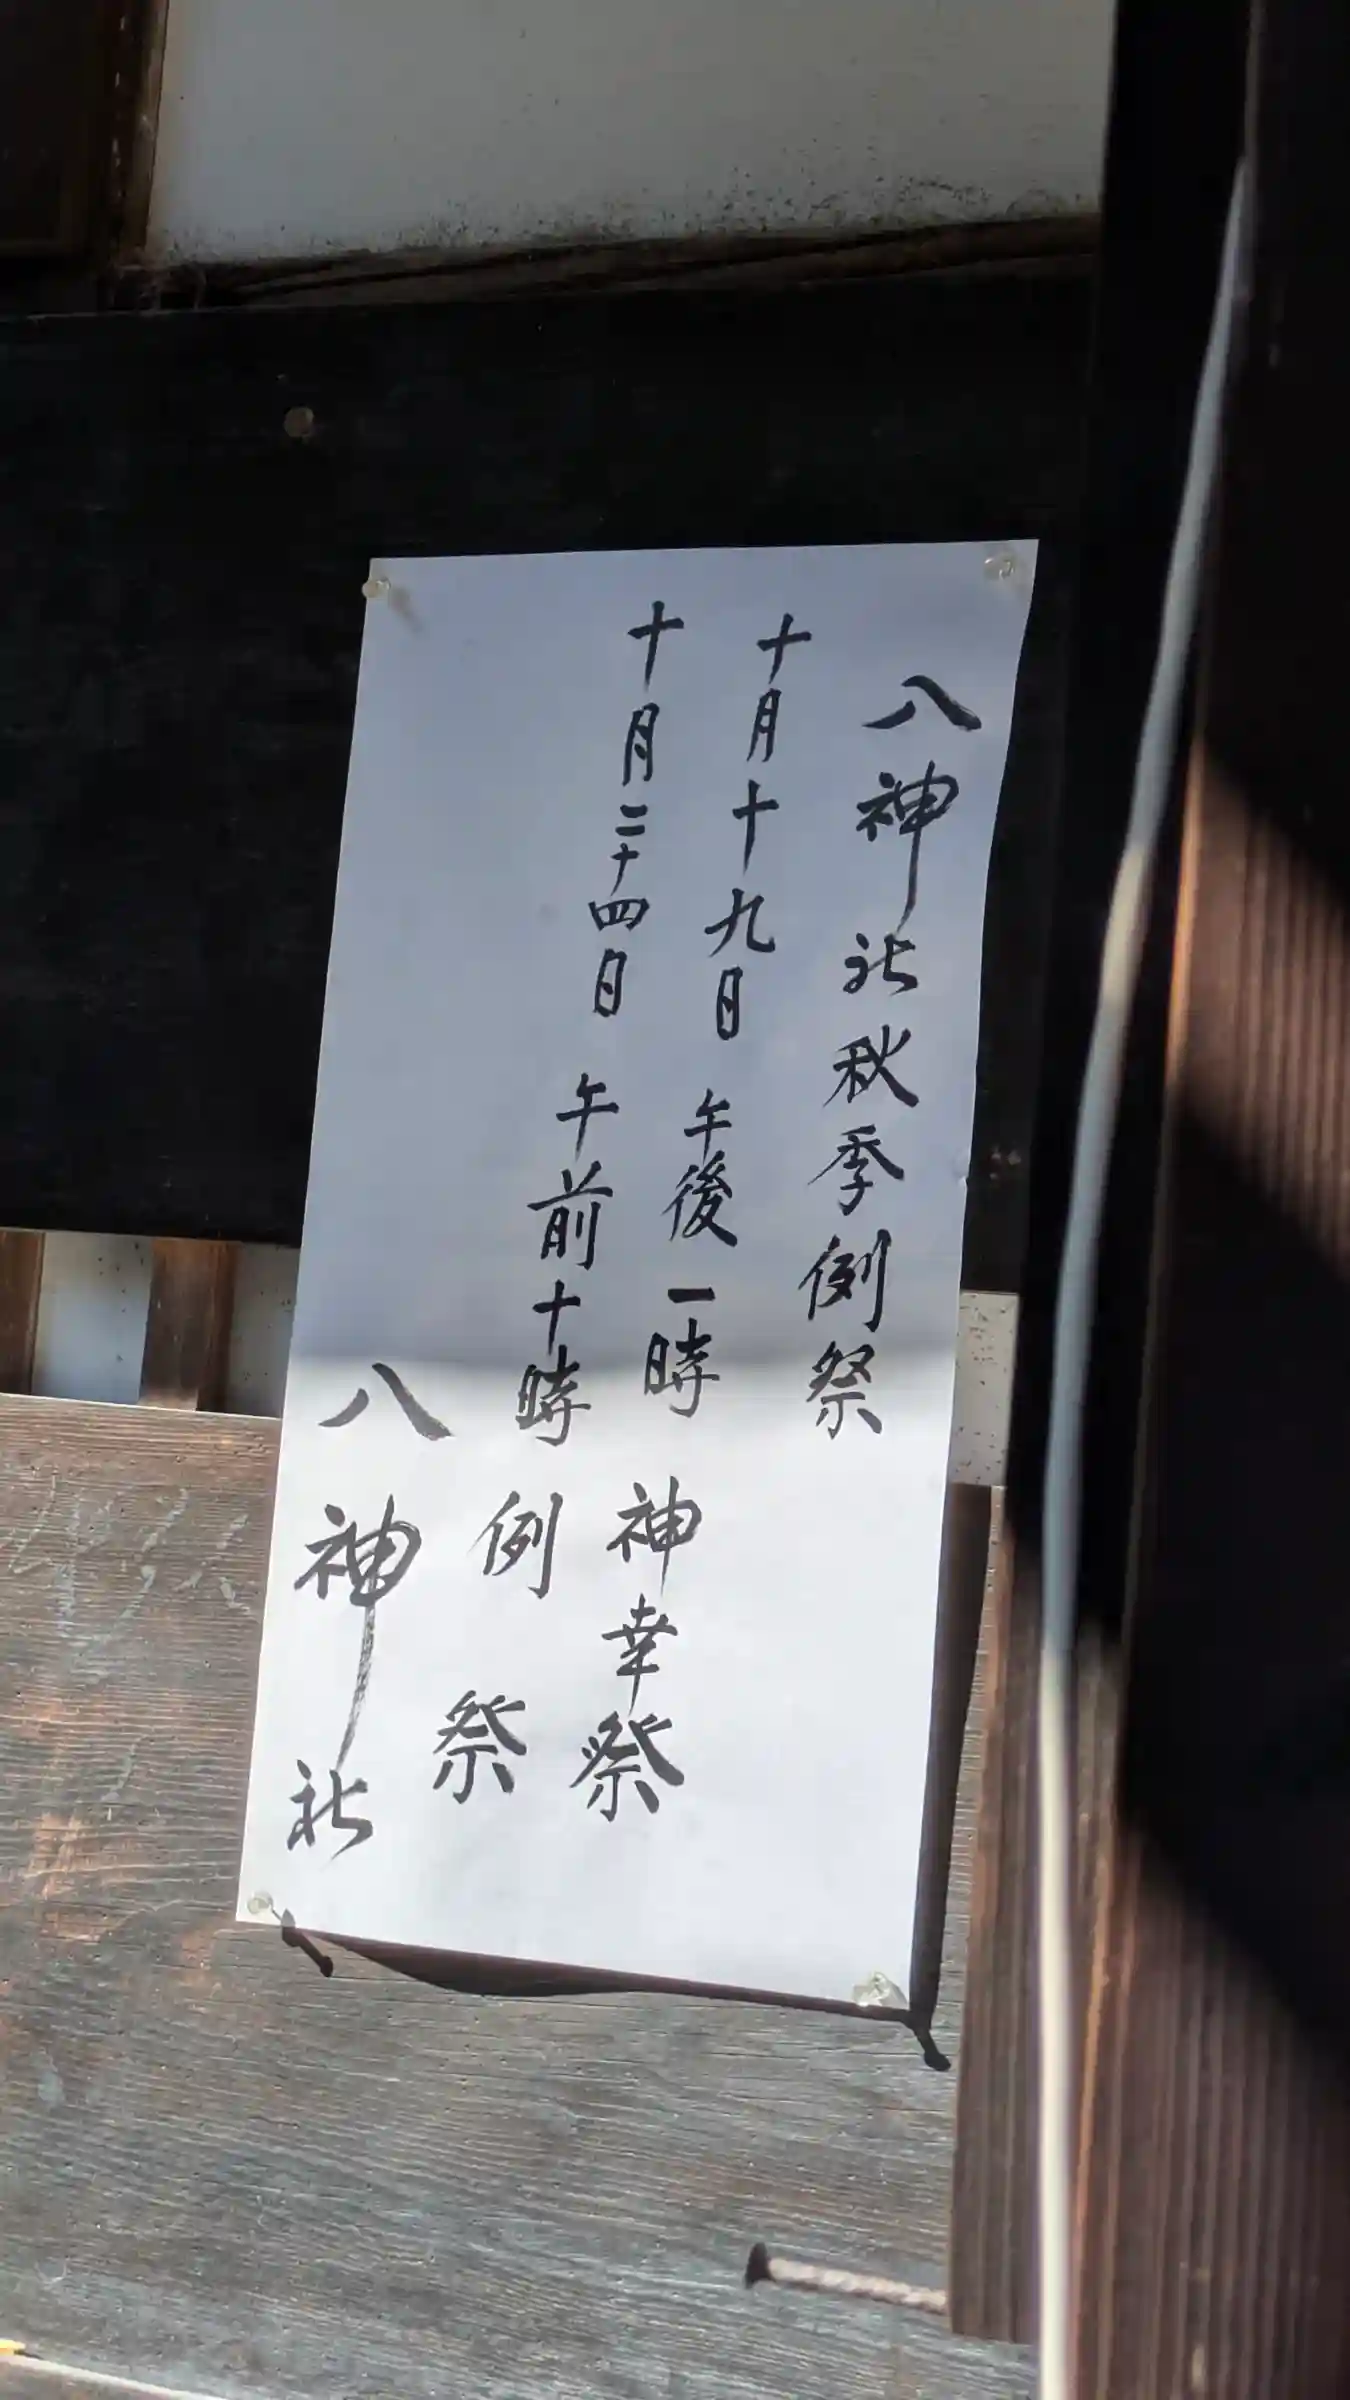 八神社秋季例祭
十月十九日 午後一時 神幸祭
十月二十四日 午前十時 例祭
八神社